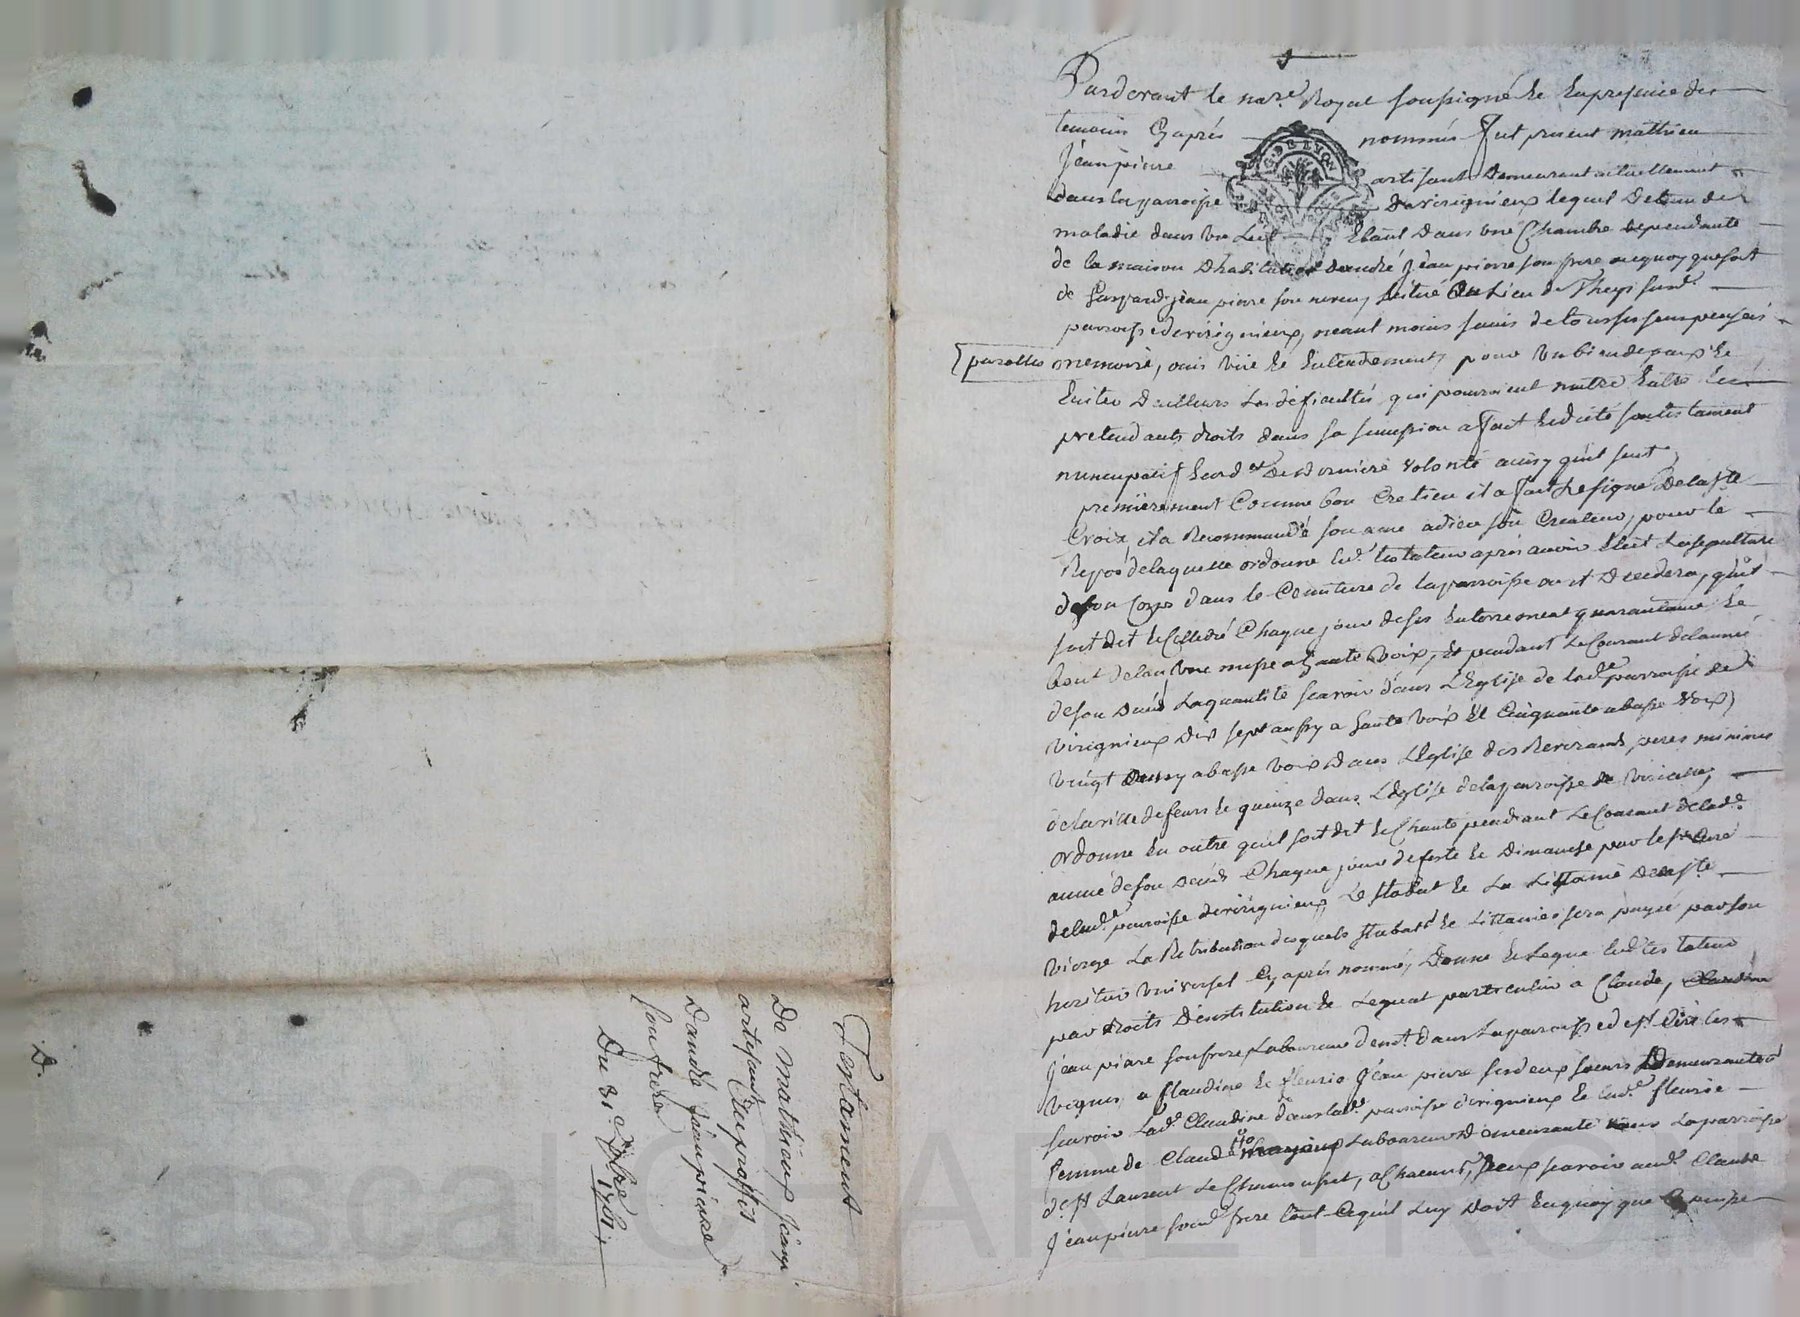 Pardevant le no.re Royal soussigné Et Enpresence des
temoins Cyaprés nommés fut present mathieu
Jéanpierre artisant Demeurant actuellement
dans la parroisse De virignieux lequel Detenu de
maladie dans un Lict Etant Dans une Chambre dependante
de la maison D'habitation dandré Jéan pierre son frere ouquoyquesoit
de Gaspard Jéan pierre son neveu, scitué Au Lieu de Theys susd.
parroisse de virignieux, neant moins sains de tous ses sens pensées
parolles memoire, ouis vüe Et Entendement, pour un bien de paix Et
Eviter D'ailleurs Les déficultés qui pouroient naitre Entre Les
pretendants droits dans sa succession a fait Endicté son testament
nuncupatif Et ord.e De Derniere volonté ainsy qu'il suit
premiérement Comme bon Cretien il a fait Le signe De la ste
Croix, et a Recommandé son ame a dieu son Createur, pour le
Repos de laquelle ordonne led. testateur aprés avoir Eleut La sepulture
de son Corps dans le Cemitiere de la parroisse ou il Decedera, qu'il
soit dit Et Cellebré Chaque jour de ses Enterrement quarantaine Et
bout de lan, une messe a haute voix, Et pendant Le Courant de lannée
de son Decés La quantité scavoir dans L'Eglise de lad.e parroisse de
virignieux Dix sept aussy a haute voix Et Cinquante a basse voix,
vingt aussy a basse voix Dans L'Eglise des Reverands peres minimes
de la ville de feurs Et quinze dans L'Eglise de la parroisse de viricelle,
ordonne En outre qu'il soit dit Et Chanté pendant Le Courant de lad.e
année de son Decés Chaque jour de feste Et Dimanche par le s.r Curé
de lad.e parroisse de virignieux Le stabat Et La Littanie De la ste
vierge La Retribution desquels stabat Et Littanies sera payée par son
heritier universel Cy aprés nommé, Donne Et Legue led. testateur
par droits D'institution Et Leguat particulier a Claude,
Jéan pierre son frere Laboureur dem.t dans La parroisse de st Ciré les
vignes, a Claudine Et fleurie Jéan pierre ses deux sœurs Demeurantes
scavoir Lad. Claudine dans lad.e parroisse virignieux Et lad.e fleurie
femme de Claude Laboureur Demeurante dans La parroisse
de st Laurent de Chamousset, a Chacuns, deux scavoir aud. Claude
Jéan pierre sond. frere tout Cequ'il Luy Doit Enquoy que Ce puisse
Testament
De mathieux Jéanp
artisant, Au proffit
Dandré Jéanpierre
son frere
Du 31.e 1761
D.
Pascal CHARLETRON